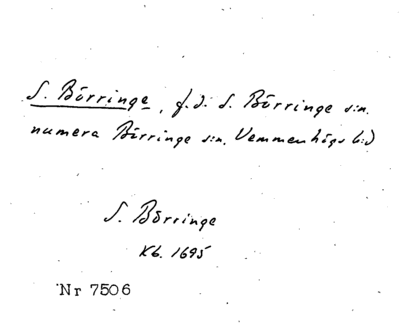 S. Börringe, f.d. S. Börringe s:n.
numera Börringe s:n. Vemmenhögs h:d
S. Börringe
Kb. 1695
Nr 7506